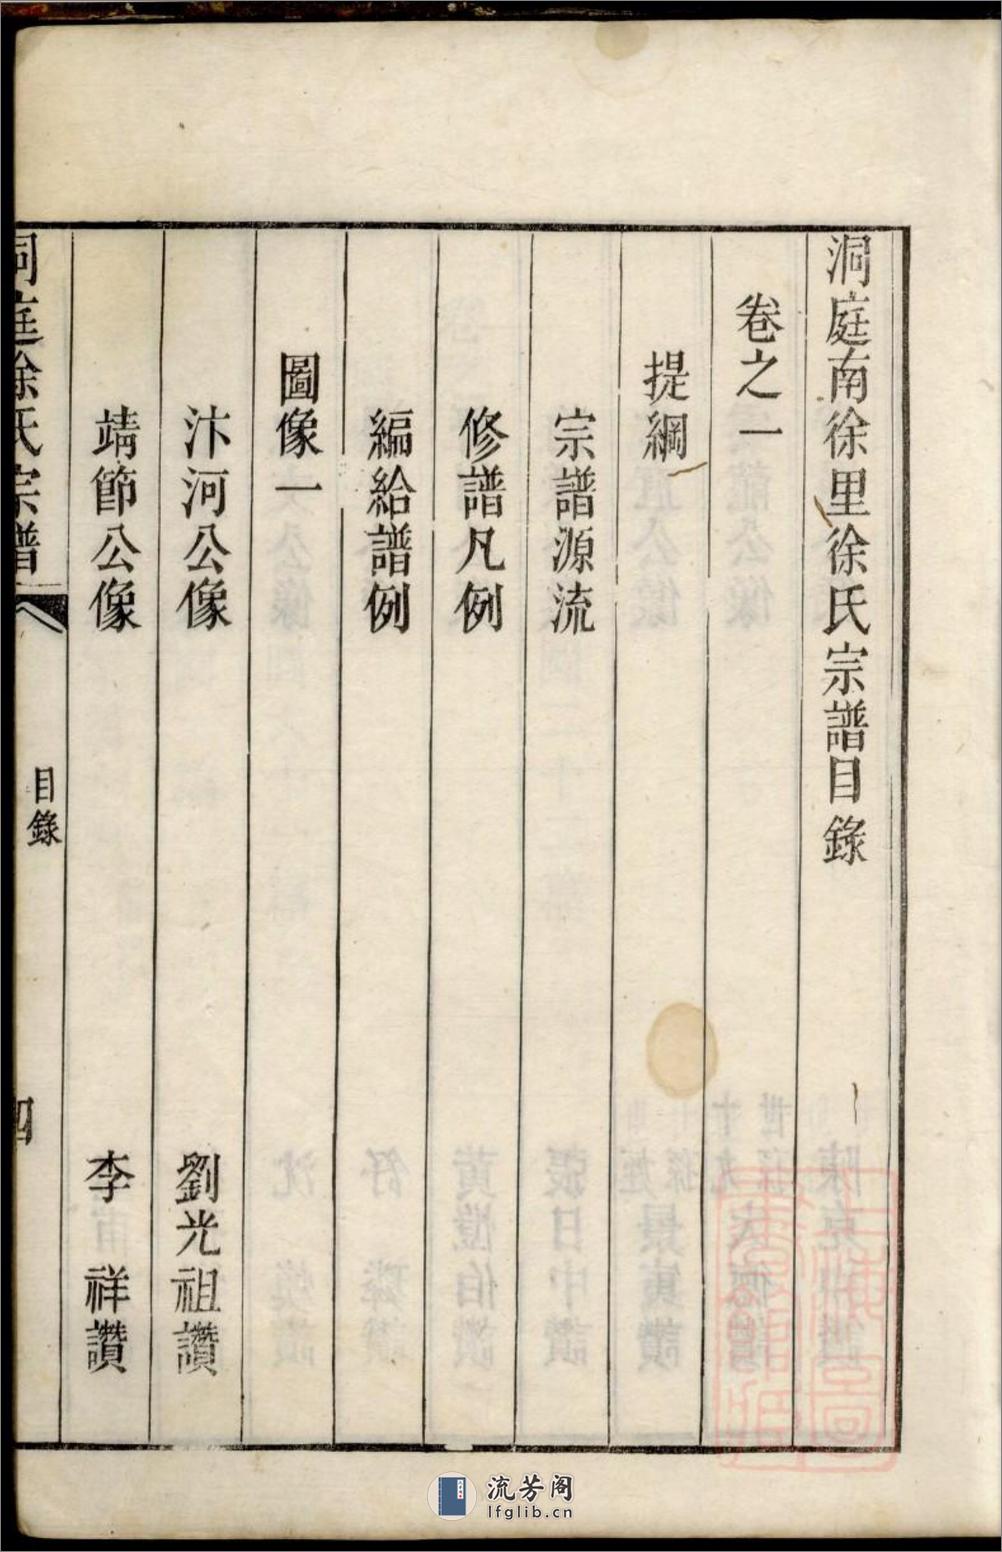 洞庭南徐里徐氏宗譜目錄
卷之一
提綱
宗譜源流
修譜凡例
編給譜例
圖像一
汴河公像 劉光祖讚
靖節公像 李祥讚
洞庭徐氏宗譜 目錄 四
流芳阁
lfglib.cn